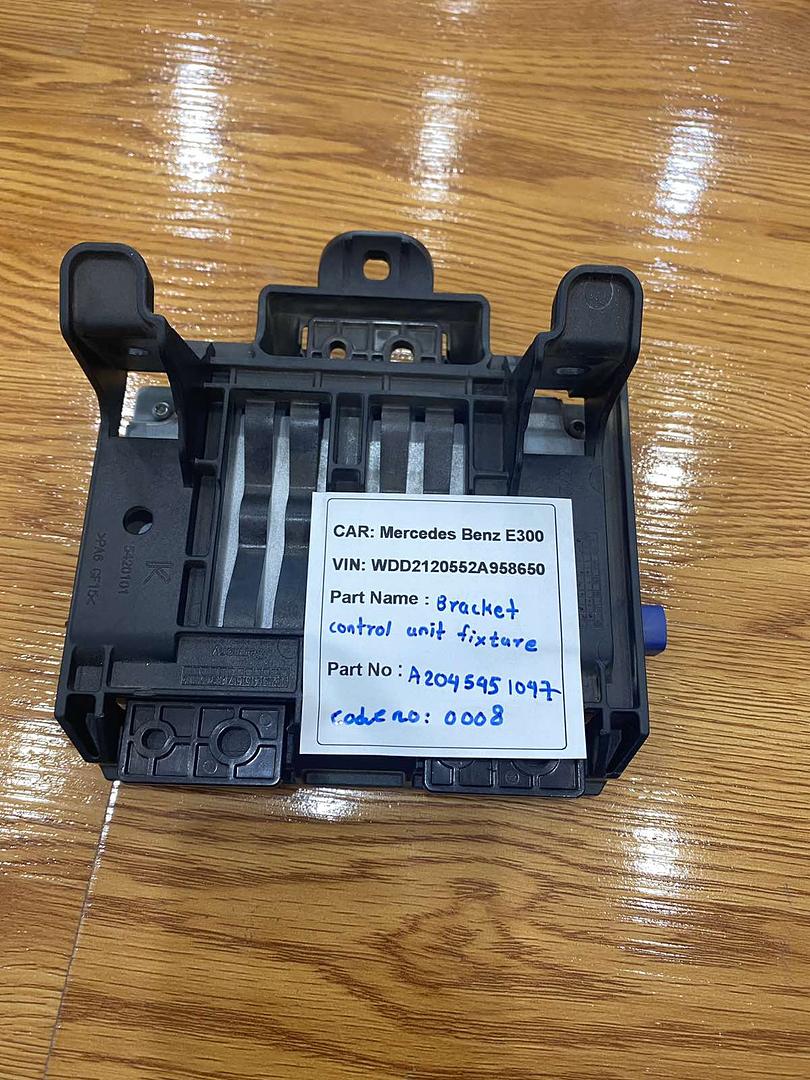 CAR: Mercedes Benz E300
VIN: WDD2120552A958650
Part Name : Bracket
control unit fixture
Part No : A2045451047
code no: 0008
5420101
>PA6 GF15<